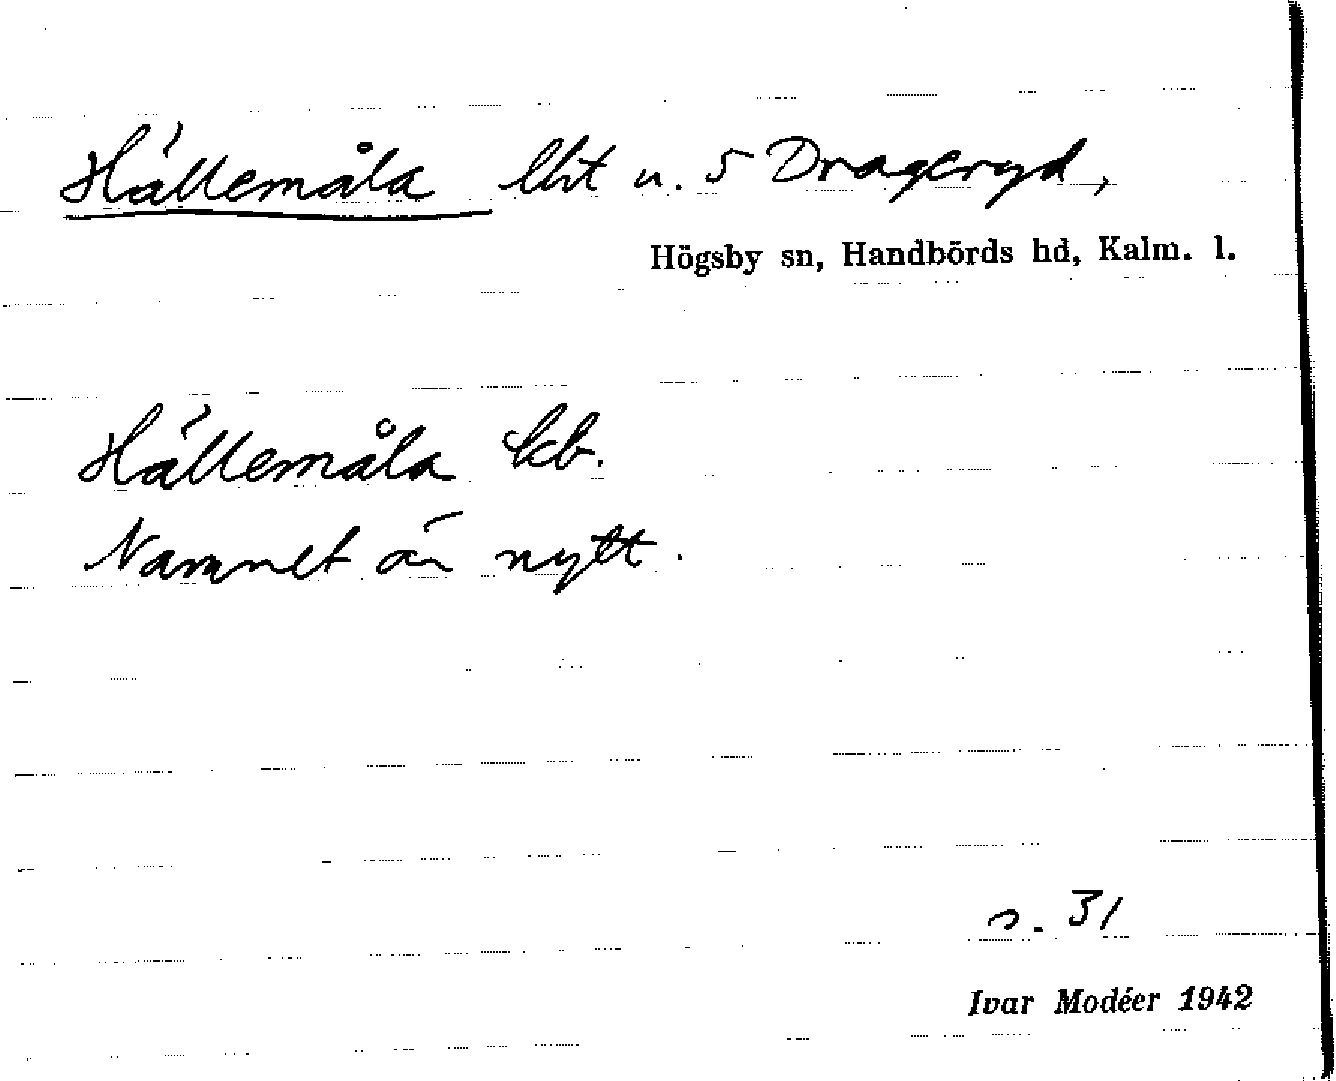 Hällemåla lht u. 5 Drageryd,
Högsby sn, Handbörds hd, Kalm. l.
Hällemåla kb.
Namnet är nytt.
s. 31
Ivar Modéer 1942